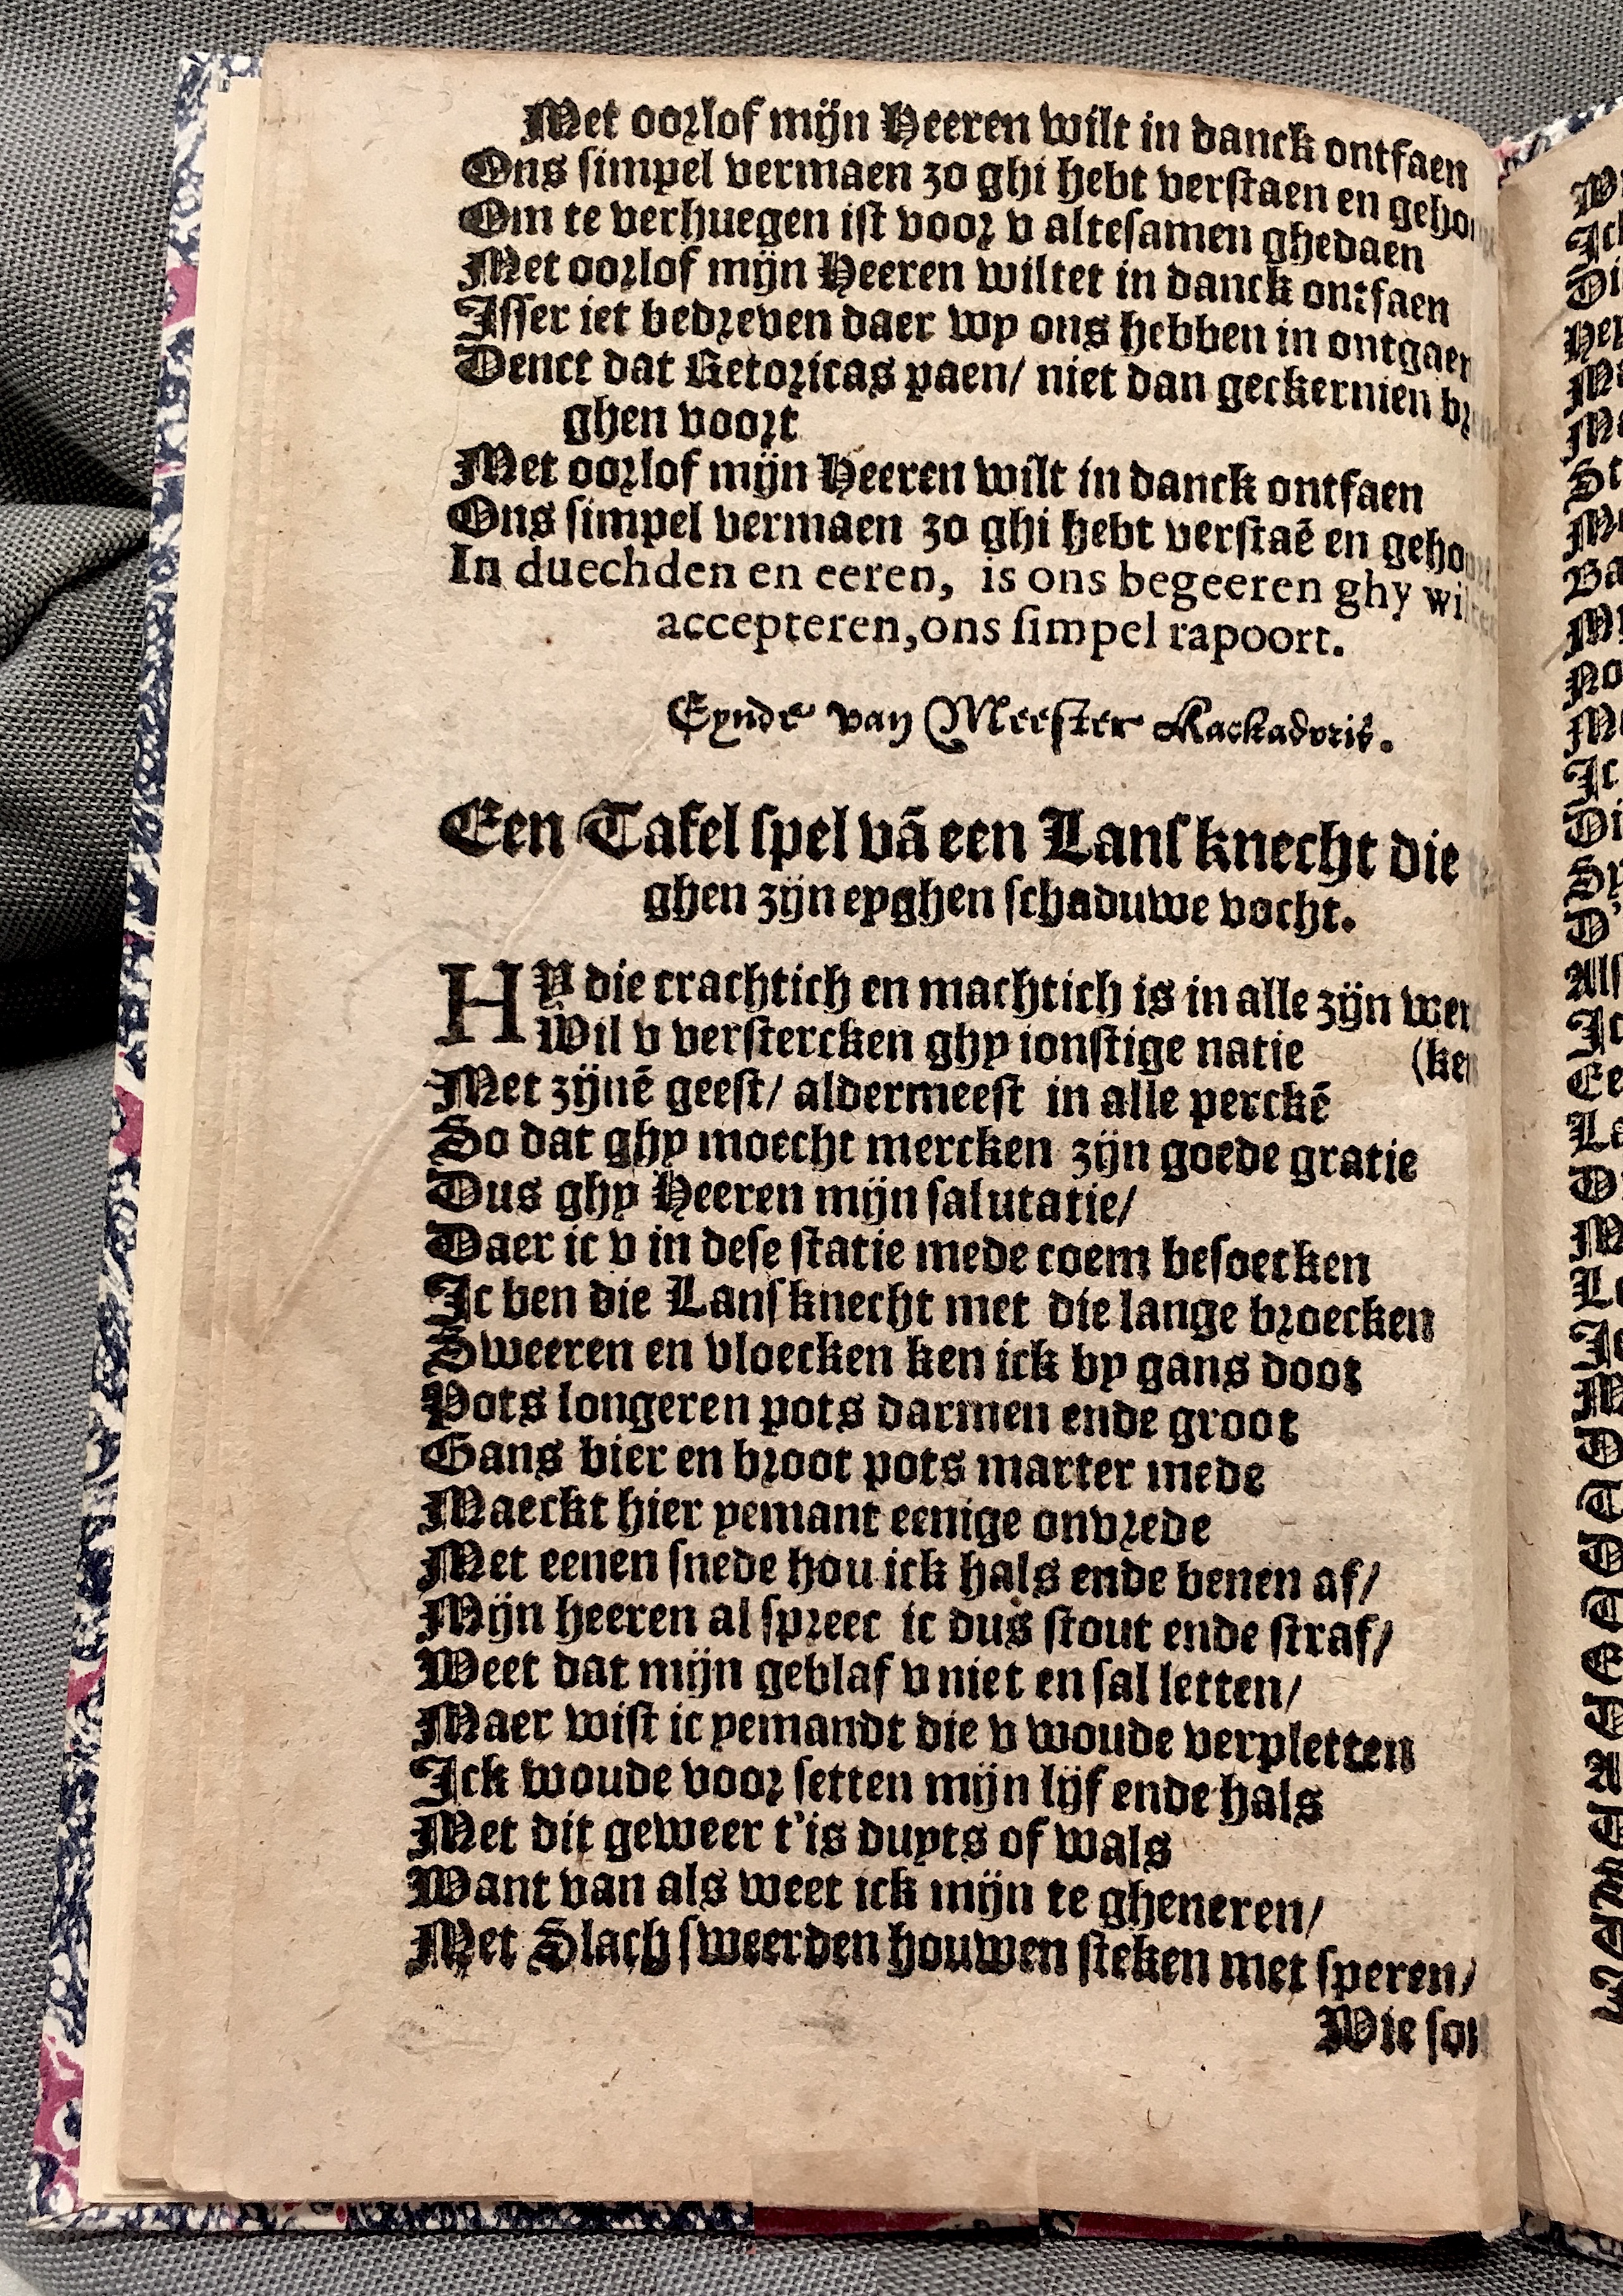 Met oorlof mijn Heeren wilt in danck ontfaen
Ons simpel vermaen zo ghi hebt verstaen en
Om te verhuegen ist voor v altesamen ghedaen
Met oorlof mijn Heeren wiltet in danck ontfaen
Isser iet bedreven daer wy ons hebben in
Denct dat Retoricas paen/ niet dan geckernien
ghen voort
Met oorlof mijn Heeren wilt in danck ontfaen
Ons simpel vermaen zo ghi hebt verstaē en
In duechden en eeren, is ons begeeren ghy
accepteren, ons simpel rapoort.
Eynde van Meester Kackadoris.
Een Tafel spel vā een Lansknecht die
ghen zijn eyghen schaduwe vocht.
HY die crachtich en machtich is in alle zijn
Wil v verstercken ghy ionstige natie
Met zijnē geest/ aldermeest in alle perckē
So dat ghy moecht mercken zijn goede gratie
Dus ghy Heeren mijn salutatie/
Daer ic v in dese statie mede coem besoecken
Ic ben die Lansknecht met die lange broecken
Sweeren en vloecken ken ick by gans doot
Pots longeren pots darmen ende groot
Gans bier en broot pots marter mede
Maeckt hier yemant eenige onvrede
Met eenen snede hou ick hals ende benen af/
Mijn heeren al spreec ic dus stout ende straf/
Weet dat mijn geblaf v niet en sal letten/
Maer wist ic yemandt die v woude verpletten
Ick woude voor setten mijn lijf ende hals
Met dit geweer t'is duyts of wals
Want van als weet ick mijn te gheneren/
Met Slach sweerden houwen steken met speren/
Wie